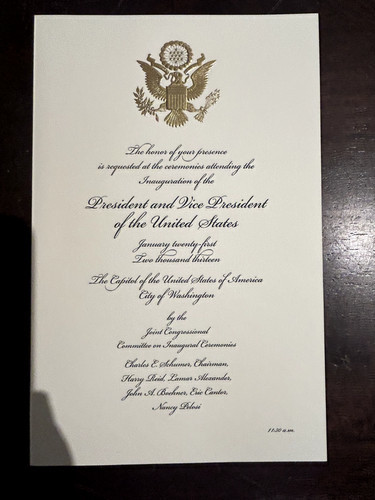 The honor of your presence
is requested at the ceremonies attending the
Inauguration of the
President and Vice President
of the United States
January twenty-first
Two thousand thirteen
The Capitol of the United States of America
City of Washington
by the
Joint Congressional
Committee on Inaugural Ceremonies
Charles E. Schumer, Chairman,
Harry Reid, Lamar Alexander,
John A. Boehner, Eric Cantor,
Nancy Pelosi
11:30 a.m.